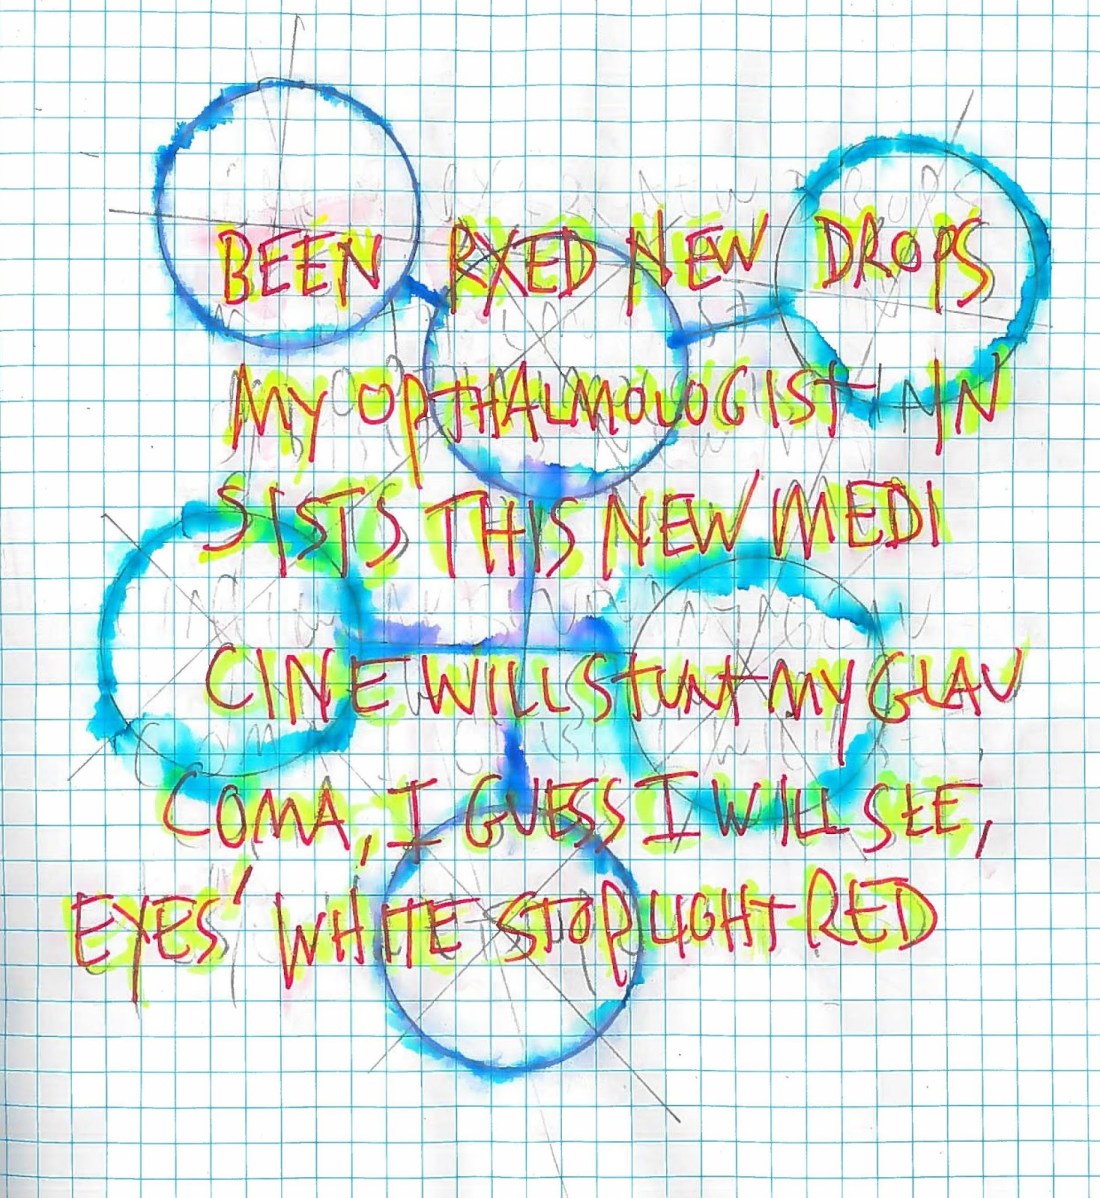 BEEN RXED NEW DROPS
MY OPTHALMOLOGIST IN
SISTS THIS NEW MEDI
CINE WILL STUNT MY GLAU
COMA, I GUESS I WILL SEE,
EYES' WHITE STOPLIGHT RED